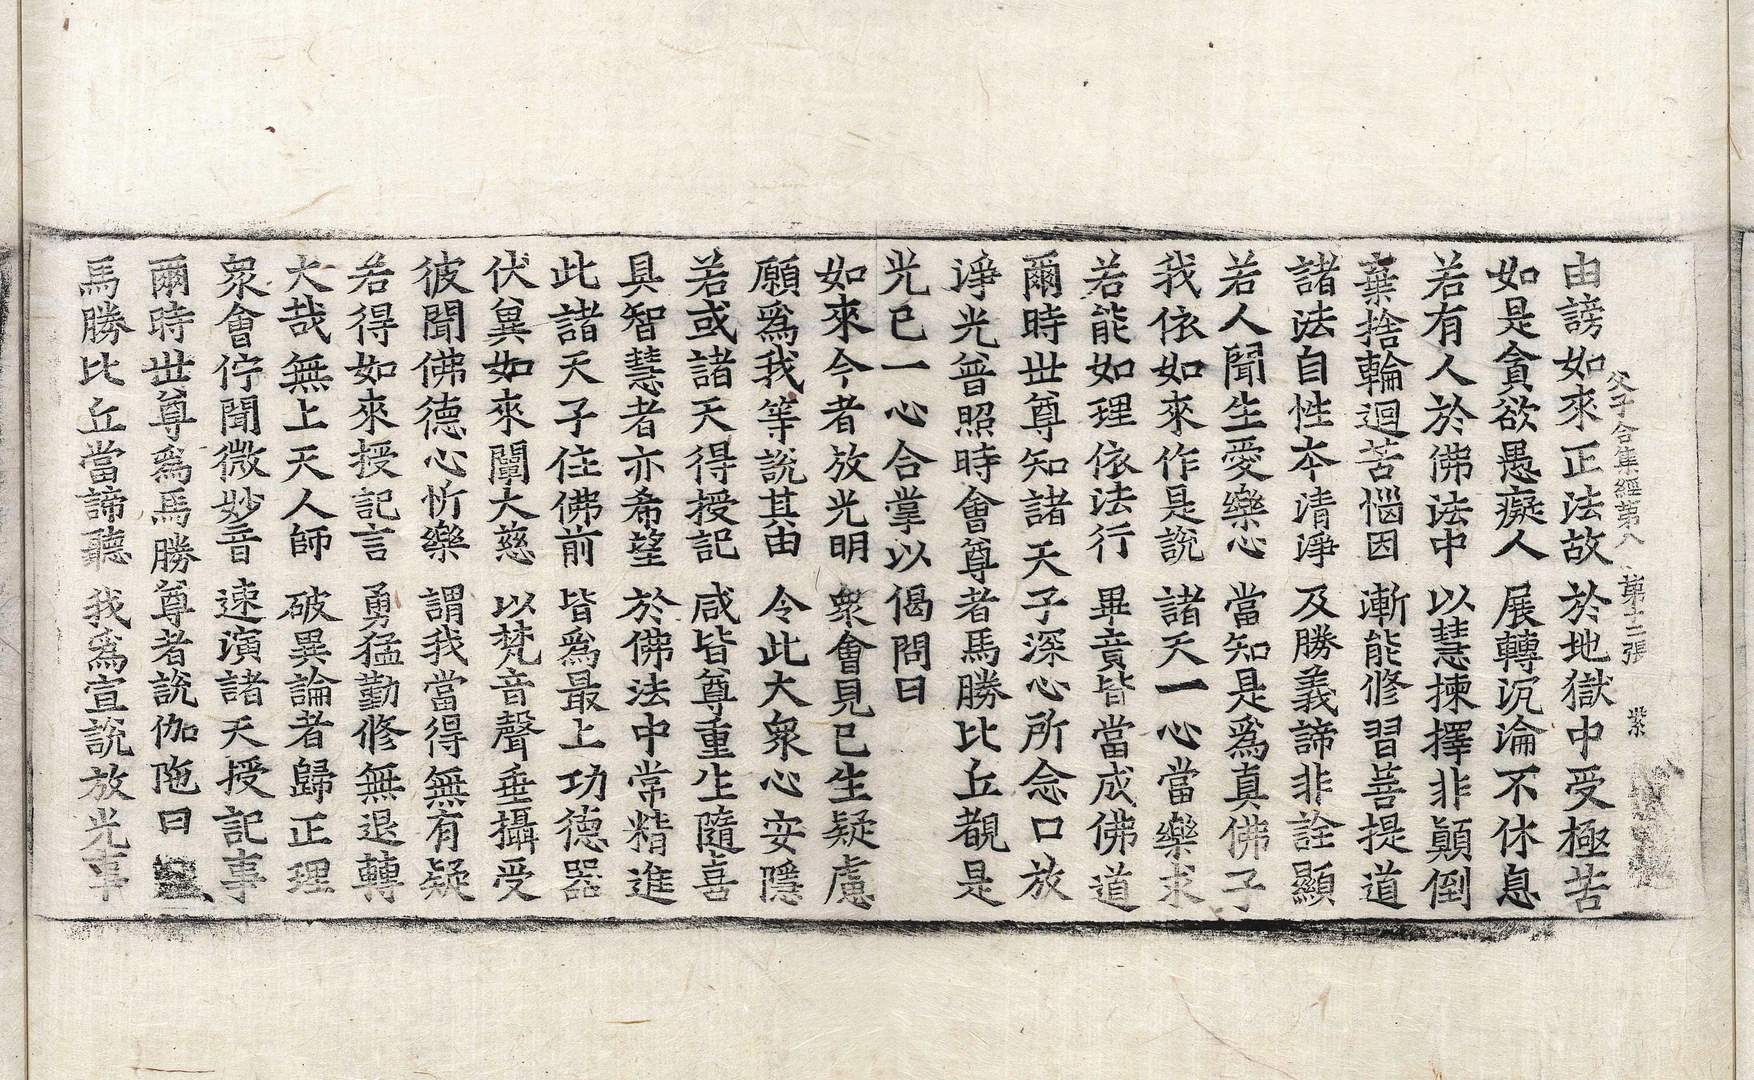 父子合集經第八　第十二張　紫
由謗如來正法故　於地獄中受極苦
如是貪欲愚癡人　展轉沉淪不休息
若有人於佛法中　以慧揀擇非顚倒
棄捨輪迴苦惱因　漸能修習菩提道
諸法自性本清淨　及勝義諦非詮顯
若人聞生愛樂心　當知是爲真佛子
我依如來作是說　諸天一心當樂求
若能如理依法行　畢竟皆當成佛道
爾時世尊知諸天子深心所念口放
淨光普照時會尊者馬勝比丘覩是
光已一心合掌以偈問曰
如來今者放光明　衆會見已生疑慮
願爲我等說其由　令此大衆心安隱
若或諸天得授記　咸皆尊重生隨喜
具智慧者亦希望　於佛法中常精進
此諸天子住佛前　皆爲最上功德器
伏兾如來闡大慈　以梵音聲垂攝受
彼聞佛德心忻樂　謂我當得無有疑
若得如來授記言　勇猛勤修無退轉
大哉無上天人師　破異論者歸正理
衆會佇聞微妙音　速演諸天授記事
爾時世尊爲馬勝尊者說伽陁曰
馬勝比丘當諦聽　我爲宣說放光事